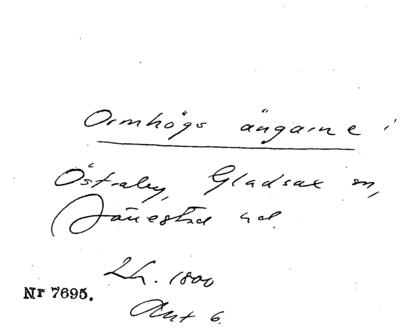 Ormhögs ängarne i
Östraby, Gladsax sn,
Järrestad hd.
Lh. 1800
Akt 6.
Nr 7695.